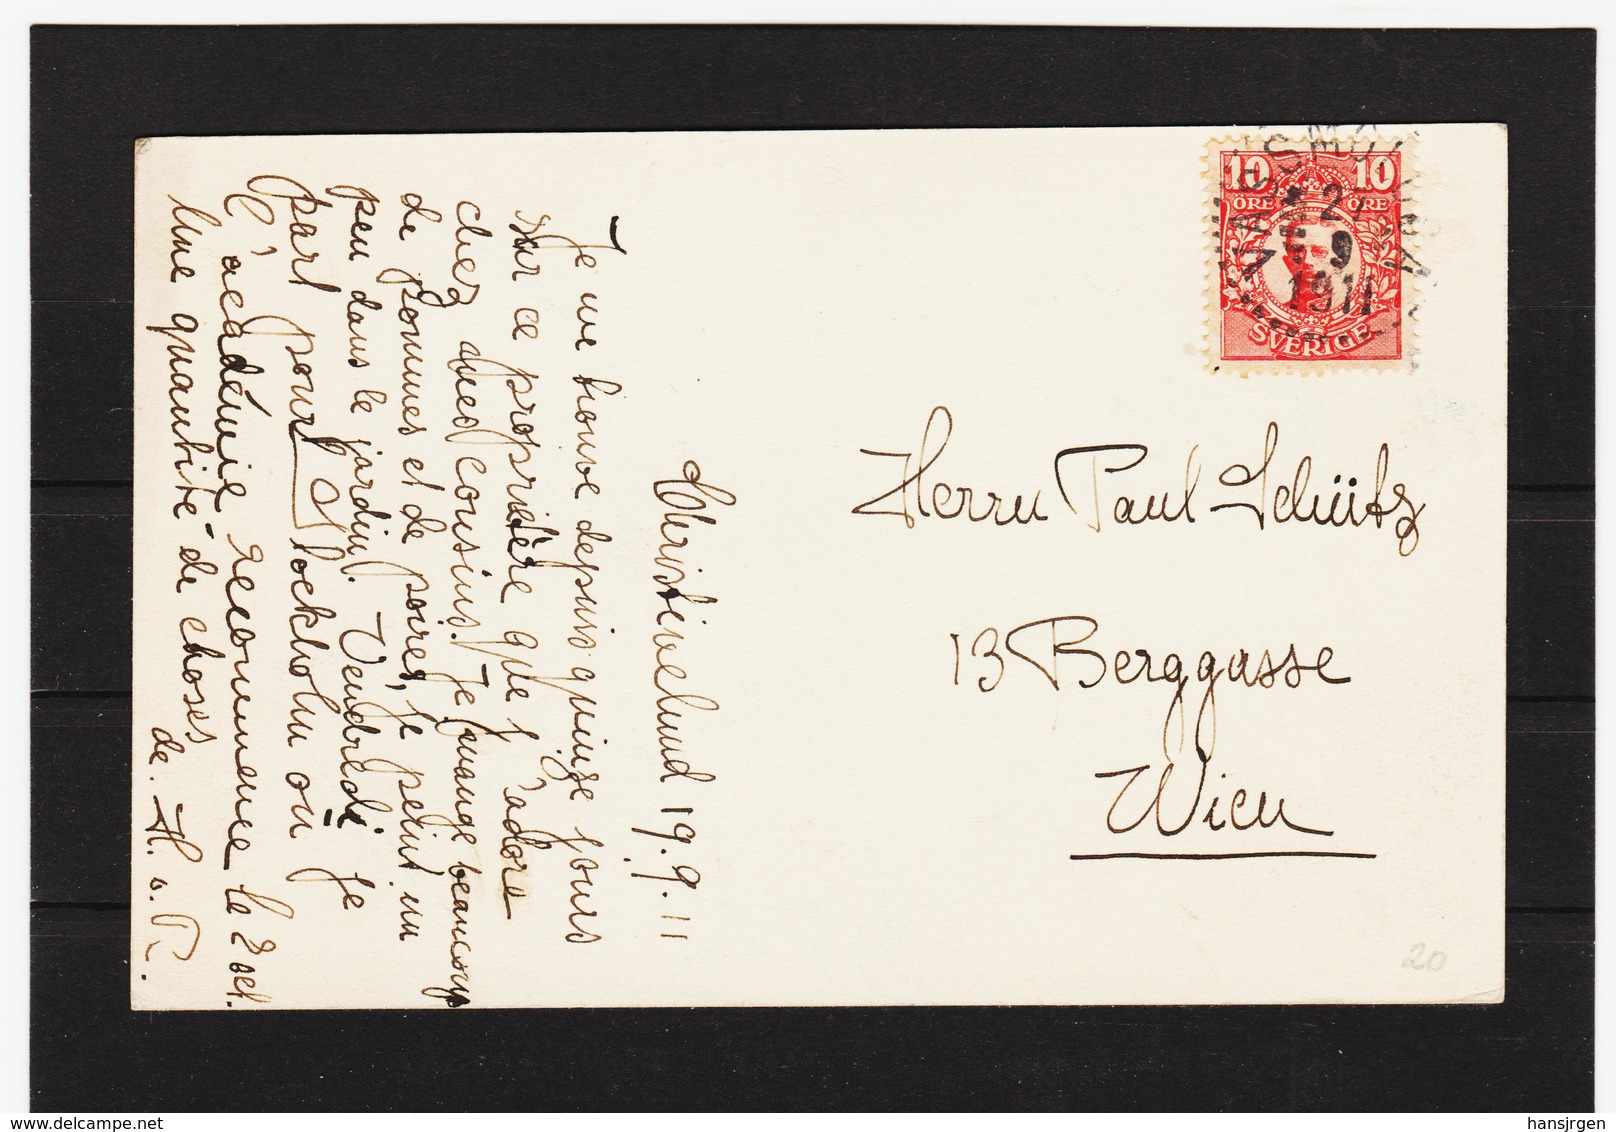 Christinelund 19.9.11
Je me trouve depuis quinze jours
sur ce propriétère que j'adore
chez mes cousins. Je mange beaucoup
de pommes et de poires, je peint un
peu dans le jardin. Vendredi je
part pour Stockholm où
l'académie recommence le 2 oct.
Une quantité de choses
de. H. v. P.
10 10
ÖRE ÖRE
SVERIGE
9
1911
Herrn Paul Schütz
13 Berggasse
Wien
20
hansjrgen